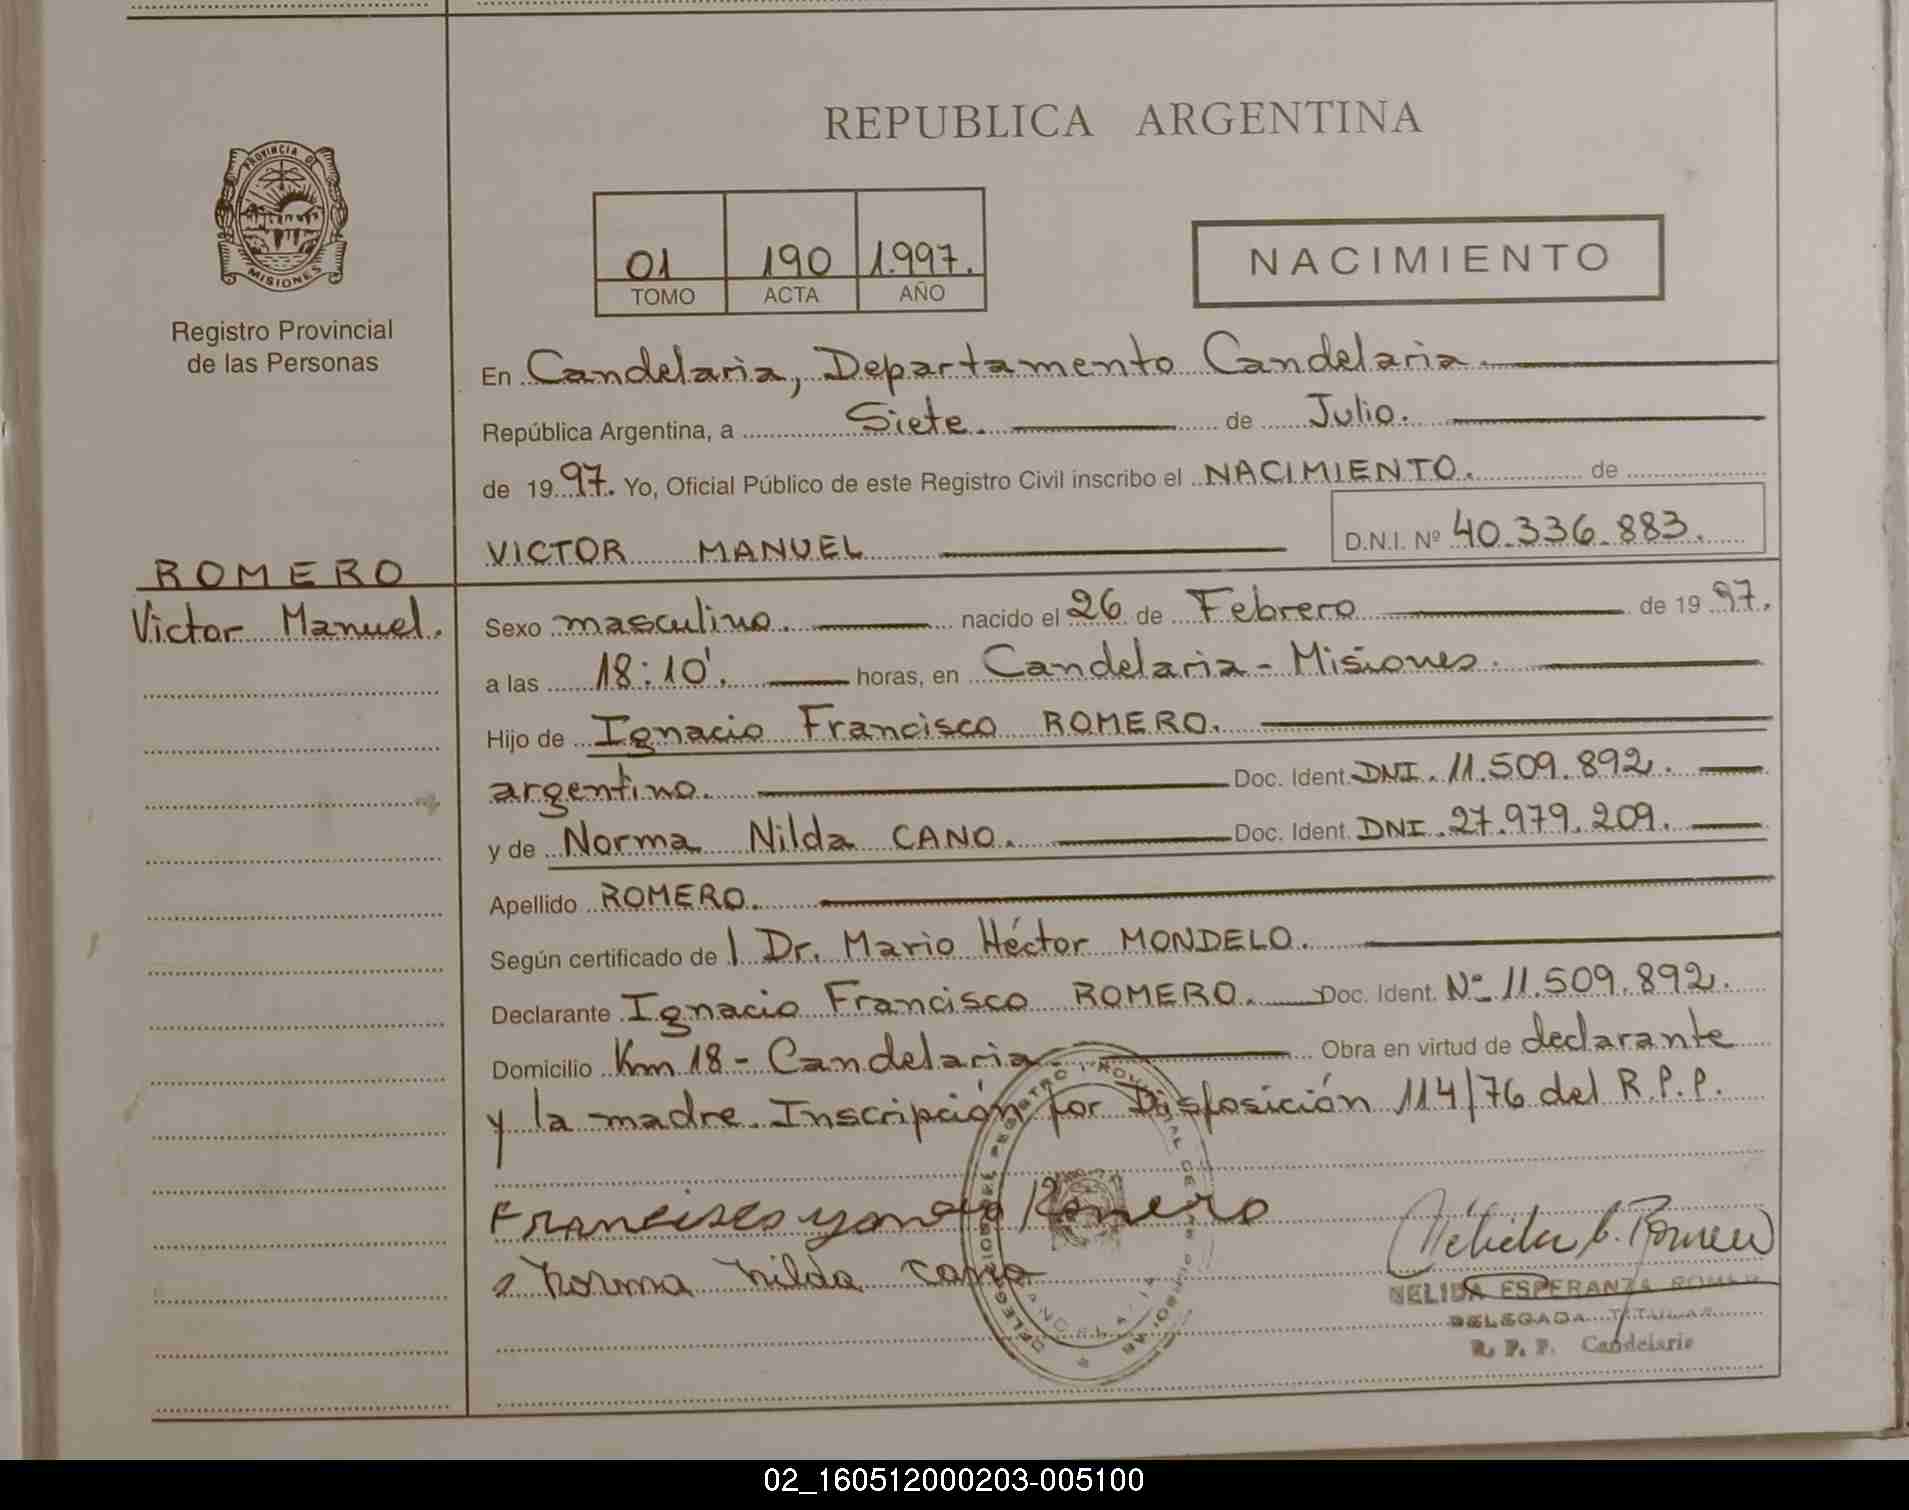 REPUBLICA ARGENTINA
PROVINCIA DE
MISIONES
Registro Provincial
de las Personas
01 190 1.997.
TOMO ACTA AÑO
NACIMIENTO
En Candelaria, Departamento Candelaria.
República Argentina, a Siete. de Julio.
de 1997. Yo, Oficial Público de este Registro Civil inscribo el NACIMIENTO. de
VICTOR MANUEL D.N.I. Nº 40.336.883.
ROMERO
Victor Manuel.
Sexo masculino. nacido el 26 de Febrero de 1997.
a las 18:10'. horas, en Candelaria - Misiones.
Hijo de Ignacio Francisco ROMERO.
argentino. Doc. Ident. DNI. 11.509.892.
y de Norma Nilda CANO. Doc. Ident. DNI. 27.979.209.
Apellido ROMERO.
Según certificado de l Dr. Mario Héctor MONDELO.
Declarante Ignacio Francisco ROMERO. Doc. Ident. Nº 11.509.892.
Domicilio Km 18 - Candelaria. Obra en virtud de declarante
y la madre. Inscripción por Disposición 114/76 del R.P.P.
Romero
Norma Nilda Cano
NELIDA ESPERANZA
DELEGADA TITULAR
R. P. P. Candelaria
02_160512000203-005100